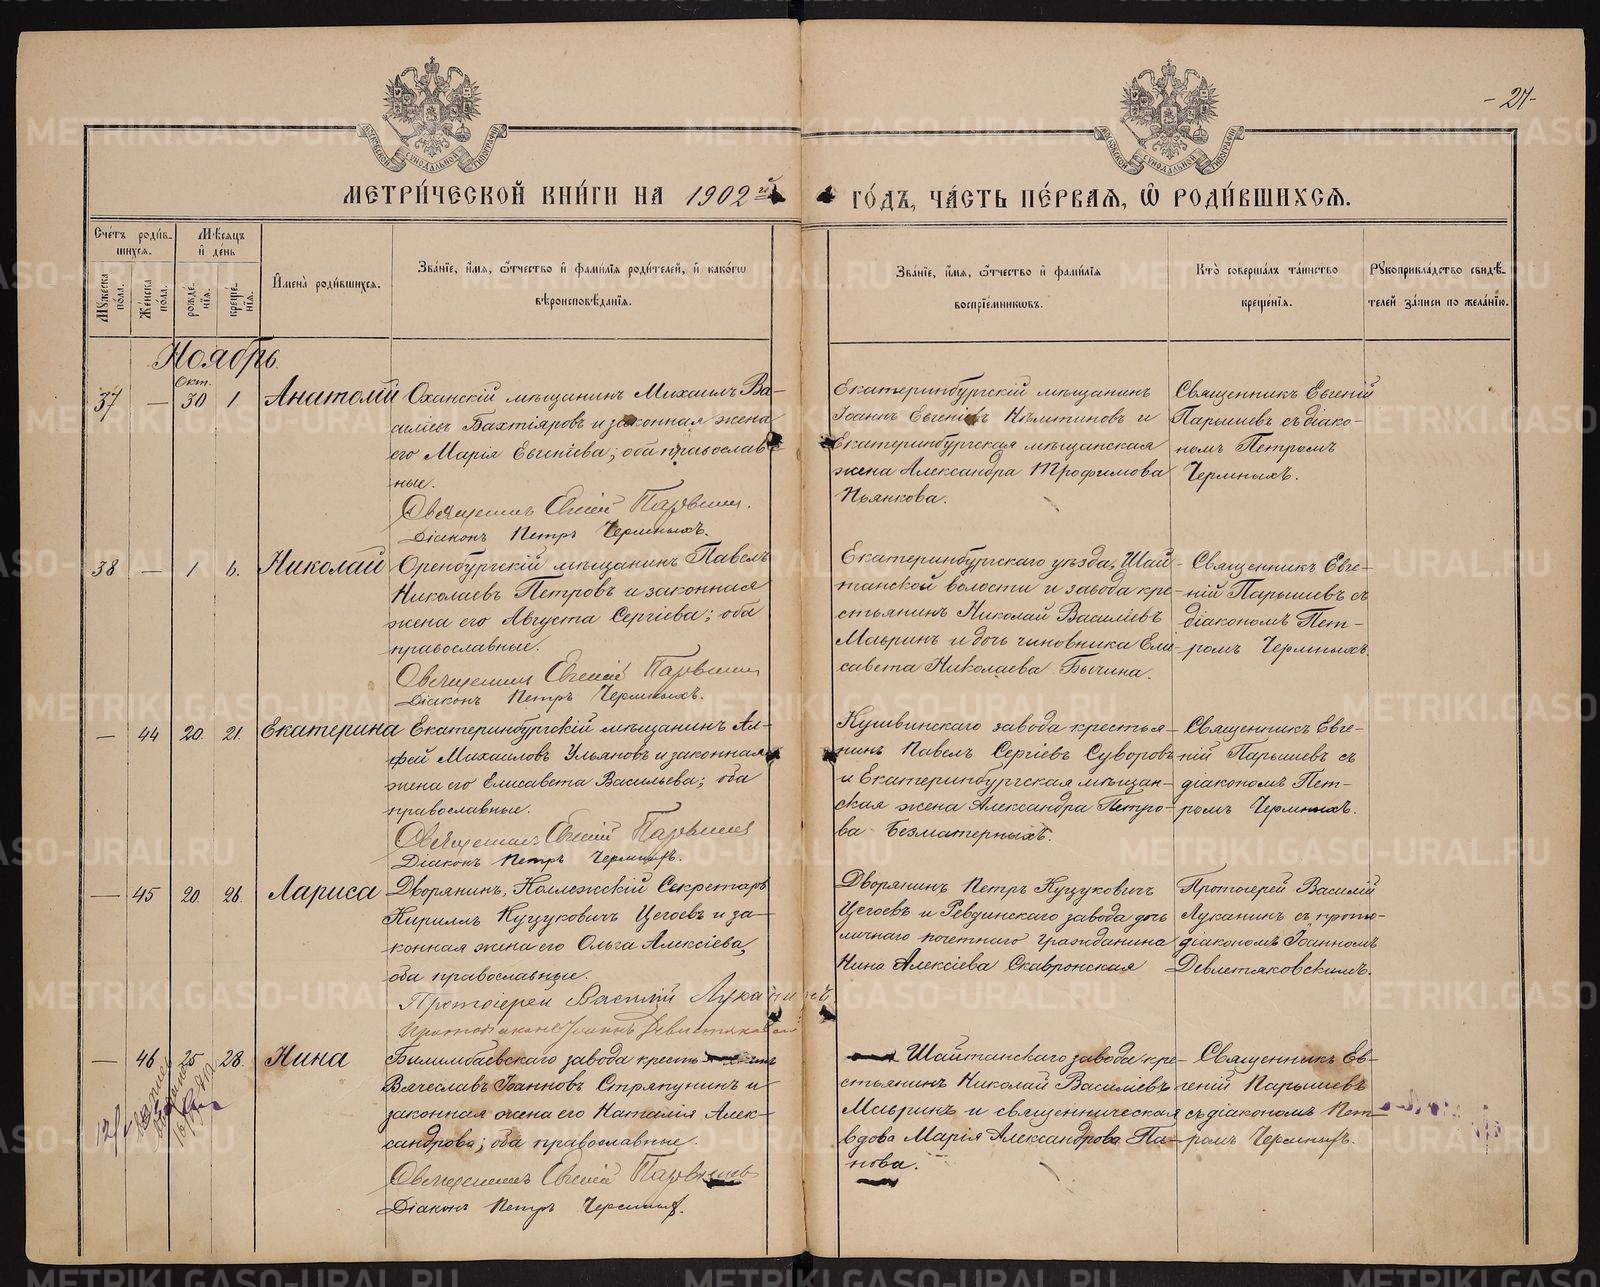 -27-
МОСКОВСКОЙ СѴНОДАЛЬНОЙ ТИПОГРАФІИ
МОСКОВСКОЙ СѴНОДАЛЬНОЙ ТИПОГРАФІИ
МЕТРИ́ЧЕСКОЙ КНИ́ГИ НА 1902й ГО́ДЪ, ЧА́СТЬ ПЕ́РВАѦ, Ѡ҆ РОДИ́ВШИХСѦ.
Сче́тъ роди́в-
шихсѧ.
Мѣ́сѧцъ
и҆ де́нь
Мꙋ́жеска по́ла.
Же́нска по́ла.
рожде́нїѧ.
креще́нїѧ.
И҆мена̀ роди́вшихсѧ.
Зва́нїе, и҆́мѧ, ѻ҆́тчество и҆ фамі́лїѧ роди́телей, и҆ како́гѡ
вѣроисповѣ́данїѧ.
Зва́нїе, и҆́мѧ, ѻ҆́тчество и҆ фамі́лїѧ
воспрїе́мникѡвъ.
Кто̀ соверша́лъ та́инство
креще́нїѧ.
Рꙋкоприкла́дство свидѣ́-
телей за́писи по жела́нїю.
Ноябрь.
Окт.
37 — 30 1 Анатолій
Оханскій мѣщанинъ Михаилъ Ва-
силіевъ Бахтіяровъ и законная жена
его Марія Евгеніева; оба православ-
ные.
Священникъ Евгеній Парышевъ.
Діаконъ Петръ Чермныхъ.
Екатеринбургскій мѣщанинъ
Іоаннъ Евгеніевъ и
Екатеринбургская мѣщанская
жена Александра Трофимова
Пьянкова.
Священникъ Евгеній
Парышевъ съ діако-
номъ Петромъ
Чермныхъ.
38 — 1 6. Николай
Оренбургскій мѣщанинъ Павелъ
Николаевъ Петровъ и законная
жена его Августа Сергіева; оба
православные.
Священникъ Евгеній Парышевъ
Діаконъ Петръ Чермныхъ.
Екатеринбургскаго уѣзда, Шай-
танской волости и завода кре-
стьянинъ Николай Василіевъ
Мавринъ и дочь чиновника Ели-
савета Николаева Бычина.
Священникъ Евге-
ній Парышевъ съ
діакономъ Пет-
ромъ Чермныхъ
— 44 20. 21. Екатерина
Екатеринбургскій мѣщанинъ Ал-
фей Михаиловъ Ульяновъ и законная
жена его Елисавета Васильева; оба
православные.
Священникъ Евгеній Парышевъ
Діаконъ Петръ Чермныхъ.
Кушвинскаго завода крестья-
нинъ Павелъ Сергіевъ Суворовъ
и Екатеринбургская мѣщан-
ская жена Александра Петро-
ва Безматерныхъ.
Священникъ Евге-
ній Парышевъ съ
діакономъ Пет-
ромъ Чермныхъ.
— 45 20. 26. Лариса
Дворянинъ, Коллежскій Секретарь
Кириллъ Куцуковичъ Цегоевъ и за-
конная жена его Ольга Алексіева,
оба православные.
Протоіерей Василій Луканинъ
Протодіаконъ Іоаннъ Девлетяковскій
Дворянинъ Петръ Куцуковичъ
Цегоевъ и Ревдинскаго завода дочь
личнаго почетнаго гражданина
Нина Алексіева Скавронская
Протоіерей Василій
Луканинъ съ прото-
діакономъ Іоанномъ
Девлетяковскимъ.
— 46 25 28. Нина
Билимбаевскаго завода кресть
Вячеславъ Іоанновъ Стряпунинъ и
законная жена его Наталія Алек-
сандрова; оба православные.
Священникъ Евгеній Парышевъ
Діаконъ Петръ Чермныхъ.
Шайтанскаго завода кре-
стьянинъ Николай Василіевъ
Мавринъ и священническая
вдова Марія Александрова Па-
нова.
Священникъ Ев-
геній Парышевъ
съ діакономъ Пет-
ромъ Чермныхъ.
METRIKI.GASO-URAL.RU